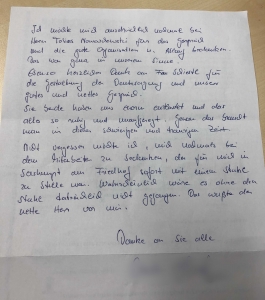 Ich möchte mich ausdrücklich nochmal bei
Herrn Tobias für das Gespräch
und die gute Organisation u. Ablauf bedanken.
Das war ganz in unserem Sinne.
Ebenso herzlichen Dank an Frau für
die Gestaltung der Danksagung und unser
gutes und nettes Gespräch.
Sie beide haben uns enorm entlastet und das
alles so ruhig und unaufgeregt. Genau das braucht
man in dieser schwierigen und traurigen Zeit.
Nicht vergessen möchte ich, mich nochmals bei
dem Mitarbeiter zu bedanken, der für mich in
am Friedhof sofort mit einem Stuhl
zu Stelle war. Wahrscheinlich wäre es ohne den
Stuhl tatsächlich nicht gegangen. Das wüßte der
nette Herr von mir.
Danke an Sie alle